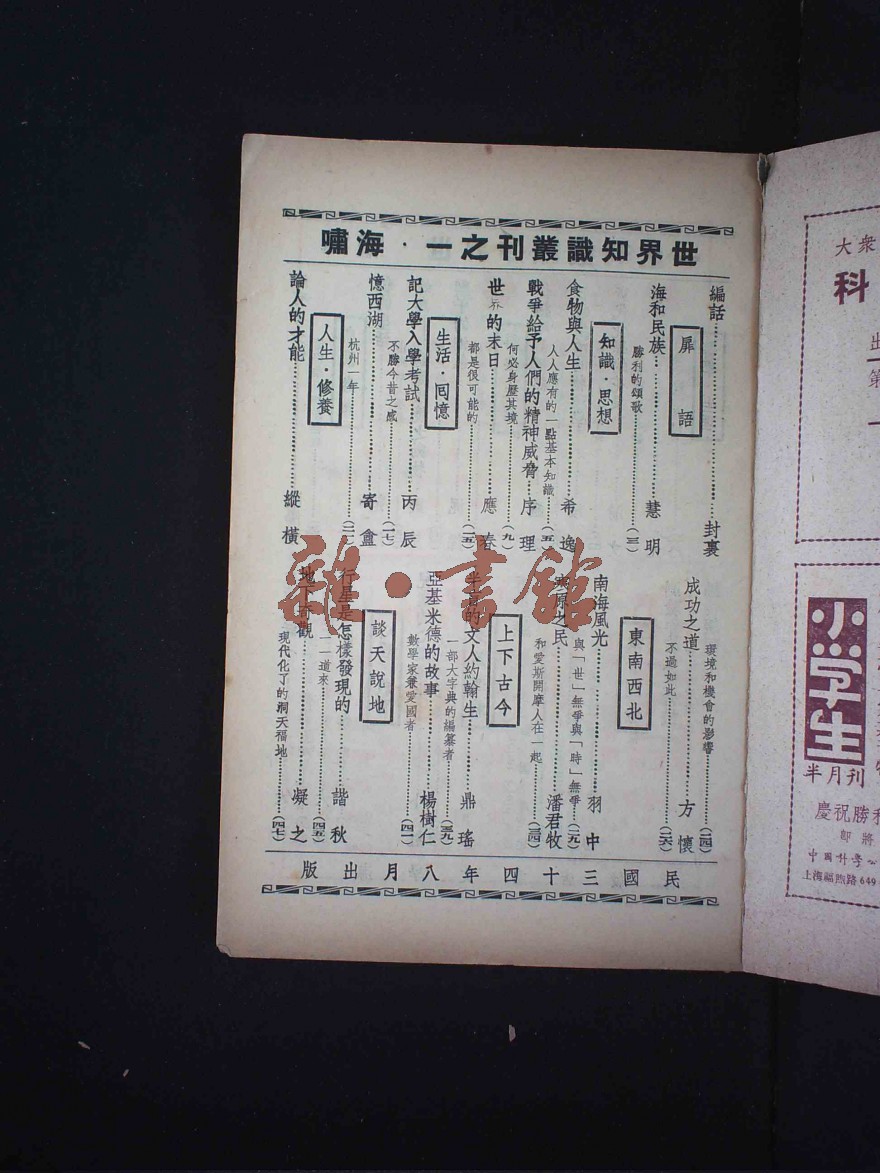 世界知識叢刊之一·海嘯
編話……封裏
扉語
海和民族……慧明
勝利的頌歌……(三)
知識·思想
食物與人生……希逸
人人應有的一點基本知識……(五)
戰爭給予人們的精神威脅……序理
何必身歷其境……(九)
世界的末日……應春
都是很可能的……(一五)
生活·回憶
記大學入學考試……丙辰
不勝今昔之感……(一七)
憶西湖……寄盒
杭州一年……
人生·修養
論人的才能……縱橫
環境和機會的影響……(二四)
成功之道……方懷
不過如此……(二六)
東南西北
南海風光……羽中
與「世」無爭與「時」無爭……(二九)
寒原之民……潘君牧
和愛斯開摩人在一起……(三四)
上下古今
半生的文人約翰生……鼎瑤
一部大字典的編纂者……(三九)
亞基米德的故事……楊樹仁
數學家兼愛國者……
談天說地
行星是怎樣發現的……諧秋
一一道來……(四五)
地下奇觀……凝之
現代化了的洞天福地……(四七)
民國三十四年八月出版
雜·書館
大衆
科
出
第一
小学生
半月刊
慶祝勝利
即將
上海福煦路649